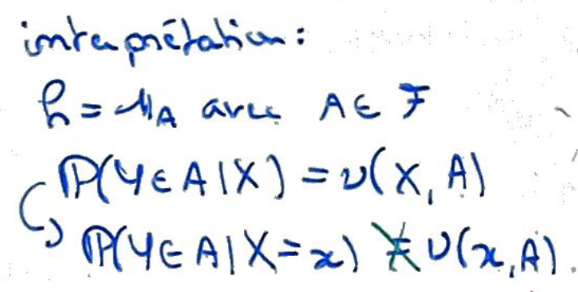 interprétation:
h = 𝟙_A avec A ∈ F
P(Y ∈ A | X) = ν(X, A)
↪ P(Y ∈ A | X = x) ≠ ν(x, A).